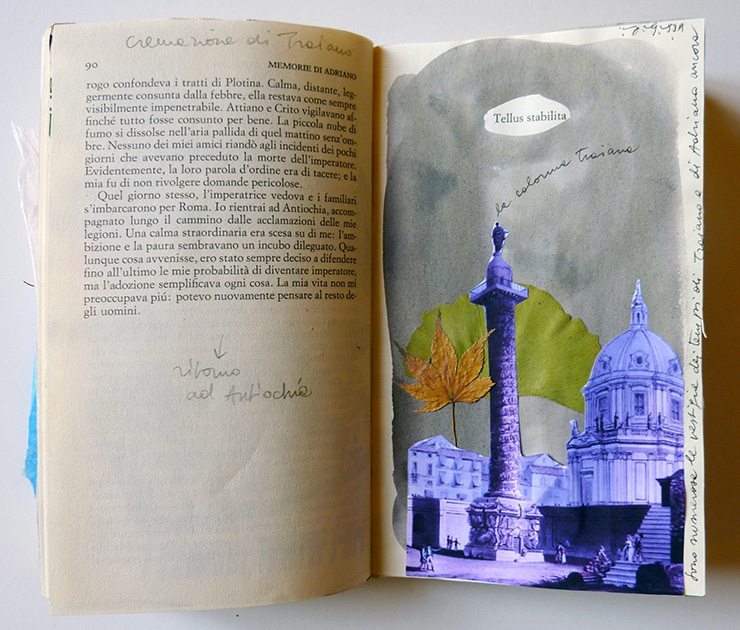 cremazione di Traiano
90 MEMORIE DI ADRIANO
rogo confondeva i tratti di Plotina. Calma, distante, leg-
germente consunta dalla febbre, ella restava come sempre
visibilmente impenetrabile. Attiano e Crito vigilavano af-
finché tutto fosse consunto per bene. La piccola nube di
fumo si dissolse nell'aria pallida di quel mattino senz'om-
bre. Nessuno dei miei amici riandò agli incidenti dei pochi
giorni che avevano preceduto la morte dell'imperatore.
Evidentemente, la loro parola d'ordine era di tacere; e la
mia fu di non rivolgere domande pericolose.
Quel giorno stesso, l'imperatrice vedova e i familiari
s'imbarcarono per Roma. Io rientrai ad Antiochia, accom-
pagnato lungo il cammino dalle acclamazioni delle mie
legioni. Una calma straordinaria era scesa su di me: l'am-
bizione e la paura sembravano un incubo dileguato. Qua-
lunque cosa avvenisse, ero stato sempre deciso a difendere
fino all'ultimo le mie probabilità di diventare imperatore,
ma l'adozione semplificava ogni cosa. La mia vita non mi
preoccupava piú: potevo nuovamente pensare al resto de-
gli uomini.
ritorno
ad Antiochia
Tellus stabilita
la colonna traiana
sono numerose le vestigia dei tempi di Traiano e di Adriano ancora